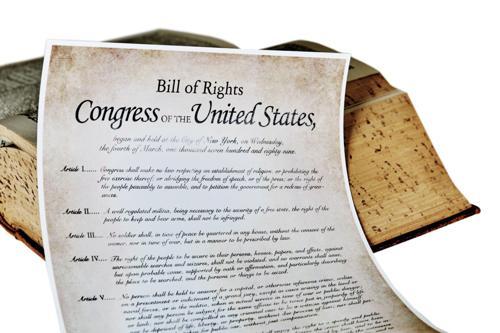 Bill of Rights
Congress OF THE United States,
begun and held at the City of New York, on Wednesday,
the fourth of March, one thousand seven hundred and eighty nine.
Article I..... Congress shall make no law respecting an establishment of religion, or prohibiting the
free exercise thereof; or abridging the freedom of speech, or of the press; or the right of
the people peaceably to assemble, and to petition the government for a redress of griev-
ances.
Article II..... A well regulated militia, being necessary to the security of a free state, the right of the
people to keep and bear arms, shall not be infringed.
Article III..... No soldier shall, in time of peace be quartered in any house, without the consent of the
owner, nor in time of war, but in a manner to be prescribed by law.
Article IV..... The right of the people to be secure in their persons, houses, papers, and effects, against
unreasonable searches and seizures, shall not be violated, and no warrants shall issue,
but upon probable cause, supported by oath or affirmation, and particularly describing
the place to be searched, and the persons or things to be seized.
Article V..... No person shall be held to answer for a capital, or otherwise infamous crime, unless
on a presentment or indictment of a grand jury, except in cases arising in the land or
naval forces, or in the militia, when in actual service in time of war or public danger;
nor shall any person be subject for the same offense to be twice put in jeopardy of life
or limb; nor shall be compelled in any criminal case to be a witness against himself,
nor be deprived of life, liberty, or property, without due process of law; nor shall